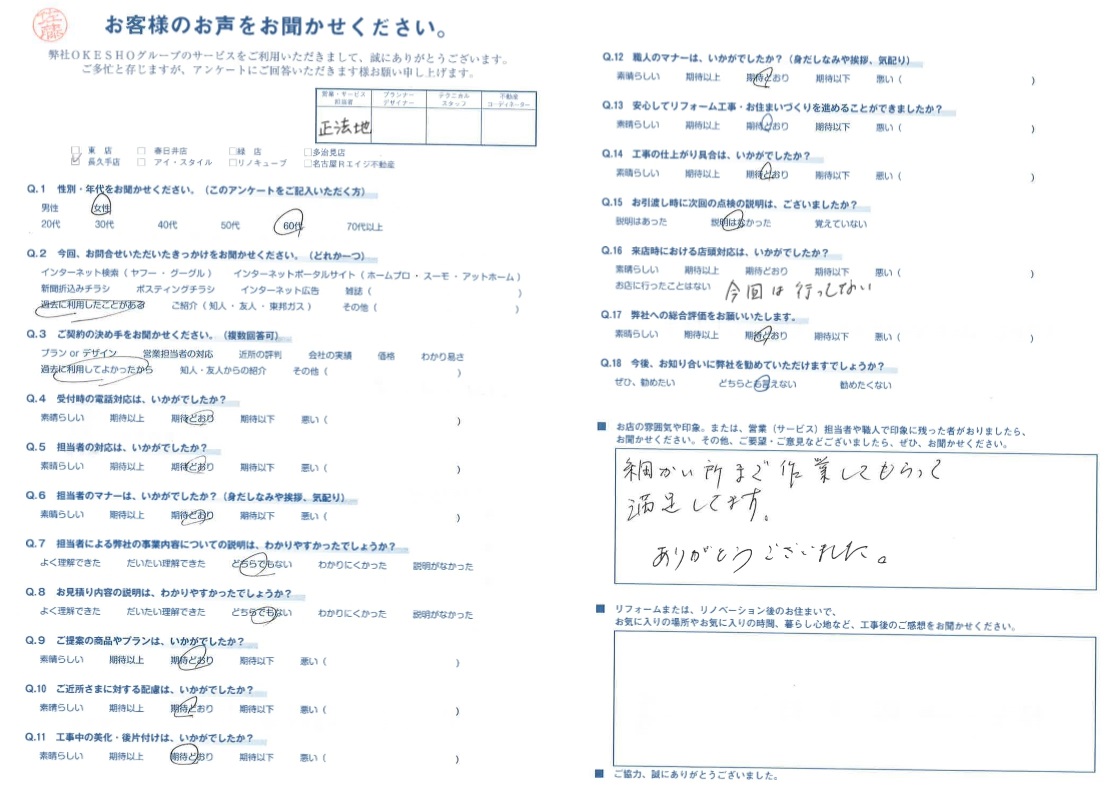 佐藤
お客様のお声をお聞かせください。
弊社OKESHOグループのサービスをご利用いただきまして、誠にありがとうございます。
ご多忙と存じますが、アンケートにご回答いただきます様お願い申し上げます。
営業・サービス担当者 プランナーデザイナー テクニカルスタッフ 不動産コーディネーター
正法地
□ 東 店 □ 春日井店 □緑 店 □多治見店
☑ 長久手店 □ アイ・スタイル □リノキューブ □名古屋Rエイジ不動産
Q.1 性別・年代をお聞かせください。（このアンケートをご記入いただく方）
男性 女性
20代 30代 40代 50代 60代 70代以上
Q.2 今回、お問合せいただいたきっかけをお聞かせください。（どれか一つ）
インターネット検索（ ヤフー ・ グーグル ） インターネットポータルサイト（ ホームプロ ・ スーモ ・ アットホーム ）
新聞折込みチラシ ポスティングチラシ インターネット広告 雑誌（ ）
過去に利用したことがある ご紹介（ 知人 ・ 友人 ・ 東邦ガス ） その他（ ）
Q.3 ご契約の決め手をお聞かせください。（複数回答可）
プラン or デザイン 営業担当者の対応 近所の評判 会社の実績 価格 わかり易さ
過去に利用してよかったから 知人・友人からの紹介 その他（ ）
Q.4 受付時の電話対応は、いかがでしたか？
素晴らしい 期待以上 期待どおり 期待以下 悪い（ ）
Q.5 担当者の対応は、いかがでしたか？
素晴らしい 期待以上 期待どおり 期待以下 悪い（ ）
Q.6 担当者のマナーは、いかがでしたか？（身だしなみや挨拶、気配り）
素晴らしい 期待以上 期待どおり 期待以下 悪い（ ）
Q.7 担当者による弊社の事業内容についての説明は、わかりやすかったでしょうか？
よく理解できた だいたい理解できた どちらでもない わかりにくかった 説明がなかった
Q.8 お見積り内容の説明は、わかりやすかったでしょうか？
よく理解できた だいたい理解できた どちらでもない わかりにくかった 説明がなかった
Q.9 ご提案の商品やプランは、いかがでしたか？
素晴らしい 期待以上 期待どおり 期待以下 悪い（ ）
Q.10 ご近所さまに対する配慮は、いかがでしたか？
素晴らしい 期待以上 期待どおり 期待以下 悪い（ ）
Q.11 工事中の美化・後片付けは、いかがでしたか？
素晴らしい 期待以上 期待どおり 期待以下 悪い（ ）
Q.12 職人のマナーは、いかがでしたか？（身だしなみや挨拶、気配り）
素晴らしい 期待以上 期待どおり 期待以下 悪い（ ）
Q.13 安心してリフォーム工事・お住まいづくりを進めることができましたか？
素晴らしい 期待以上 期待どおり 期待以下 悪い（ ）
Q.14 工事の仕上がり具合は、いかがでしたか？
素晴らしい 期待以上 期待どおり 期待以下 悪い（ ）
Q.15 お引渡し時に次回の点検の説明は、ございましたか？
説明はあった 説明はなかった 覚えていない
Q.16 来店時における店頭対応は、いかがでしたか？
素晴らしい 期待以上 期待どおり 期待以下 悪い（ ）
お店に行ったことはない 今回は行ってない
Q.17 弊社への総合評価をお願いいたします。
素晴らしい 期待以上 期待どおり 期待以下 悪い（ ）
Q.18 今後、お知り合いに弊社を勧めていただけますでしょうか？
ぜひ、勧めたい どちらとも言えない 勧めたくない
■ お店の雰囲気や印象。または、営業（サービス）担当者や職人で印象に残った者がおりましたら、
お聞かせください。その他、ご要望・ご意見などございましたら、ぜひ、お聞かせください。
細かい所まで作業してもらって
満足してます。
ありがとうございました。
■ リフォームまたは、リノベーション後のお住まいで、
お気に入りの場所やお気に入りの時間、暮らし心地など、工事後のご感想をお聞かせください。
■ ご協力、誠にありがとうございました。